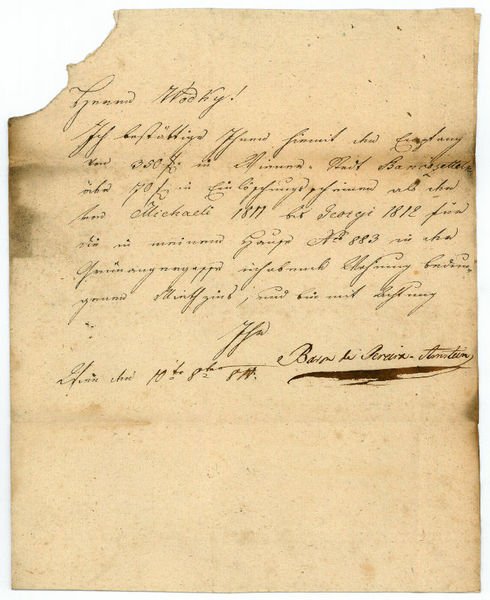 Herrn Wocky!
Ich bestättige Ihnen hiemit den Empfang
von 350 f. in Wiener-Stadt Bancozettel
oder 70 f. in Einlösungsscheinen als den
von Michaeli 1811 bis Georgi 1812 für
die in meinem Hause No 883 in der
Grünangergasse inhabende Wohnung bedun-
genen Miethzins, und bin mit Achtung
Ihr
Baron de Pereira-Arnstein
Wien den 10te 8ber 811.